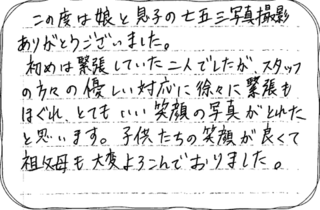 この度は娘と息子の七五三写真撮影
ありがとうございました。
初めは緊張していた二人でしたが、スタッフ
の方々の優しい対応に徐々に緊張も
ほぐれ、とてもいい笑顔の写真がとれた
と思います。子供たちの笑顔が良くて
祖父母も大変よろこんでおりました。